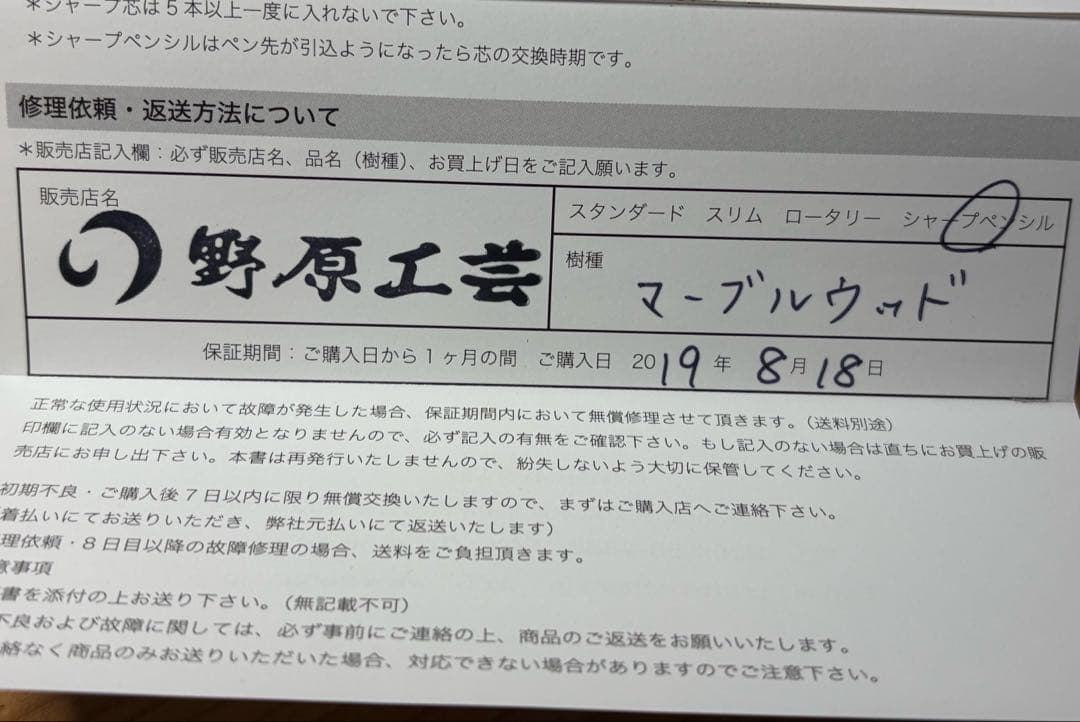 *シャープ芯は5本以上一度に入れないで下さい。
*シャープペンシルはペン先が引込ようになったら芯の交換時期です。
修理依頼・返送方法について
*販売店記入欄：必ず販売店名、品名（樹種）、お買上げ日をご記入願います。
販売店名
野原工芸
スタンダード スリム ロータリー シャープペンシル
樹種
マーブルウッド
保証期間：ご購入日から1ヶ月の間 ご購入日 2019年 8月18日
正常な使用状況において故障が発生した場合、保証期間内において無償修理させて頂きます。（送料別途）
印欄に記入のない場合有効となりませんので、必ず記入の有無をご確認下さい。もし記入のない場合は直ちにお買上げの販
売店にお申し出下さい。本書は再発行いたしませんので、紛失しないよう大切に保管してください。
初期不良・ご購入後7日以内に限り無償交換いたしますので、まずはご購入店へご連絡下さい。
着払いにてお送りいただき、弊社元払いにて返送いたします）
理依頼・8日目以降の故障修理の場合、送料をご負担頂きます。
意事項
書を添付の上お送り下さい。（無記載不可）
不良および故障に関しては、必ず事前にご連絡の上、商品のご返送をお願いいたします。
絡なく商品のみお送りいただいた場合、対応できない場合がありますのでご注意下さい。